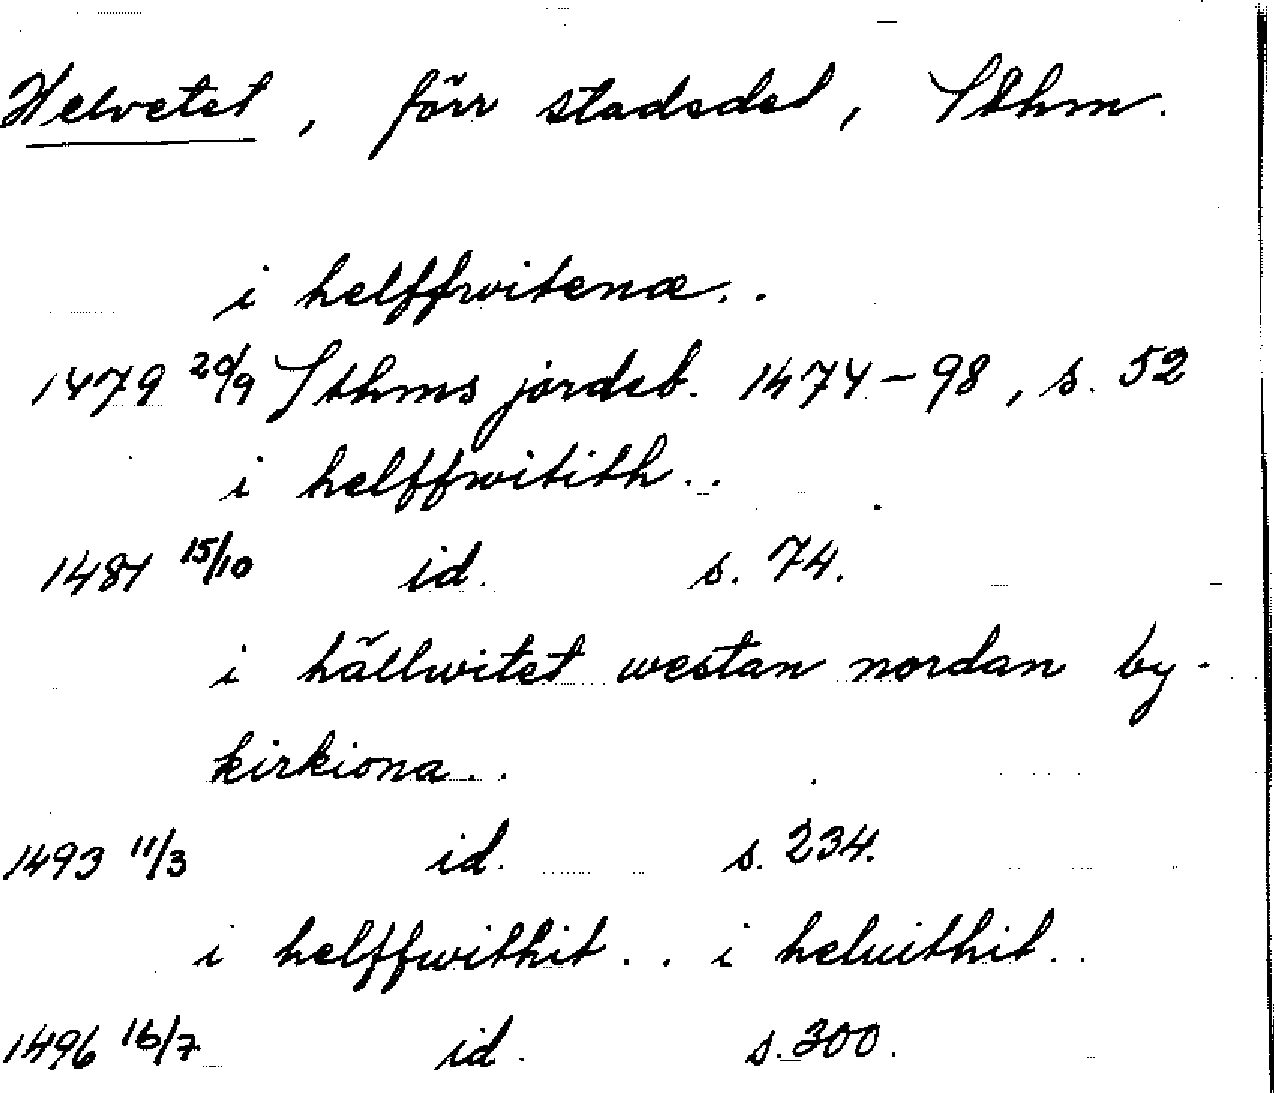 Helvetet, förr stadsdel, Sthm.
i helffwitenæ..
1479 20/9 Sthms jordeb. 1474-98, s. 52
i helffwitith..
1481 15/10 id. s. 74.
i hällwitet westan nordan by-
kirkiona..
1493 11/3 id. s. 234.
i helffwithit.. i heluithit..
1496 16/7 id. s. 300.